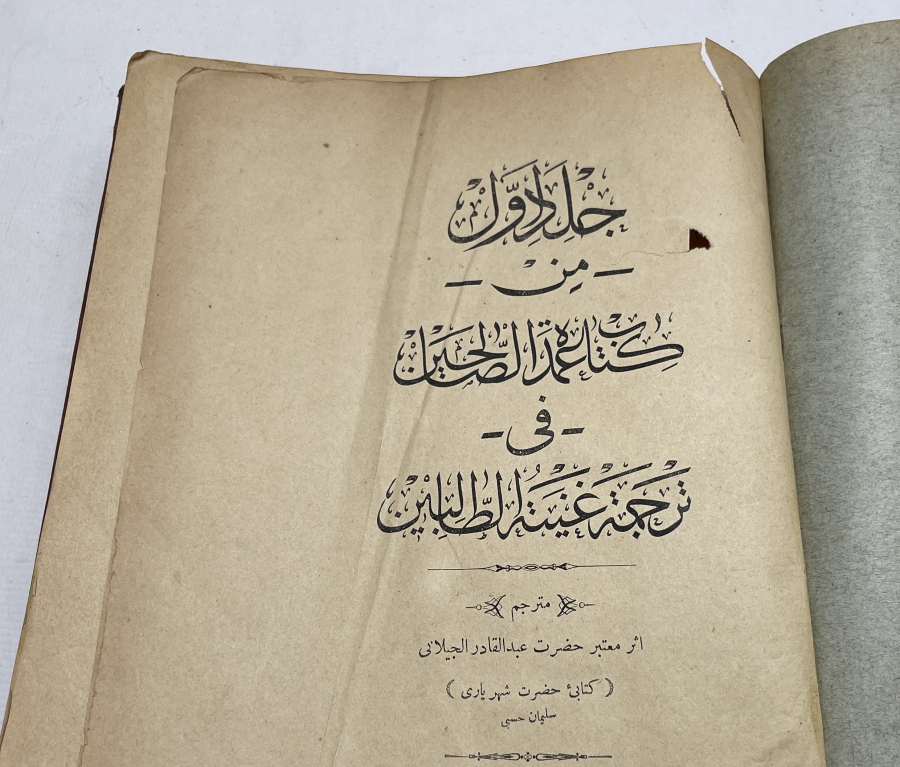 جلد اول
من
كتاب عمدة الصالحين
فى
ترجمة غنية الطالبين
مترجم
اثر معتبر حضرت عبدالقادر الجيلانى
(كتابئ حضرت شهريارى)
سليمان حسبى